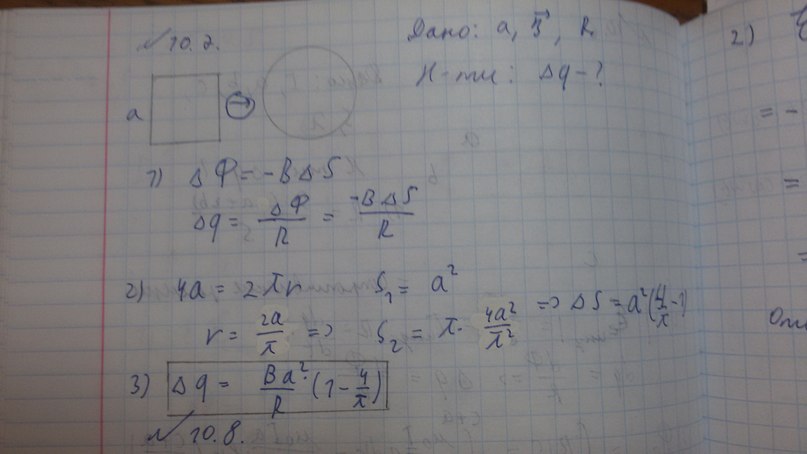 № 10.7.
Дано: a, B⃗, R
Н-ти: Δq - ?
a
1) ΔΦ = -BΔS
Δq = ΔΦ/R = -BΔS/R
2) 4a = 2πr S₁ = a²
r = 2a/π => S₂ = π · 4a²/π² => ΔS = a²(4/π - 1)
3) Δq = Ba²/R (1 - 4/π)
№ 10.8.
2)
= -
=
=